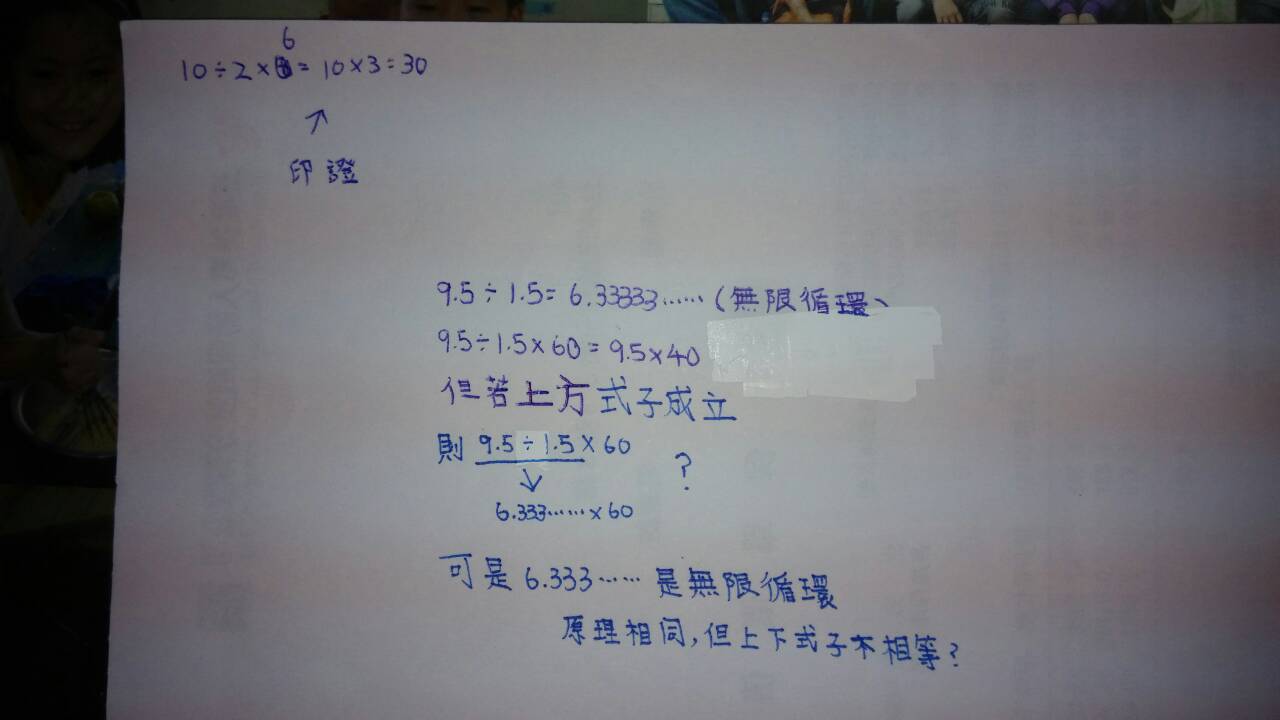 6
10÷2×6=10×3=30
↗
印證
9.5÷1.5=6.33333……(無限循環、
9.5÷1.5×60=9.5×40
但若上方式子成立
則 9.5÷1.5×60 ?
↓
6.333……×60
可是6.333……是無限循環
原理相同,但上下式子不相等?